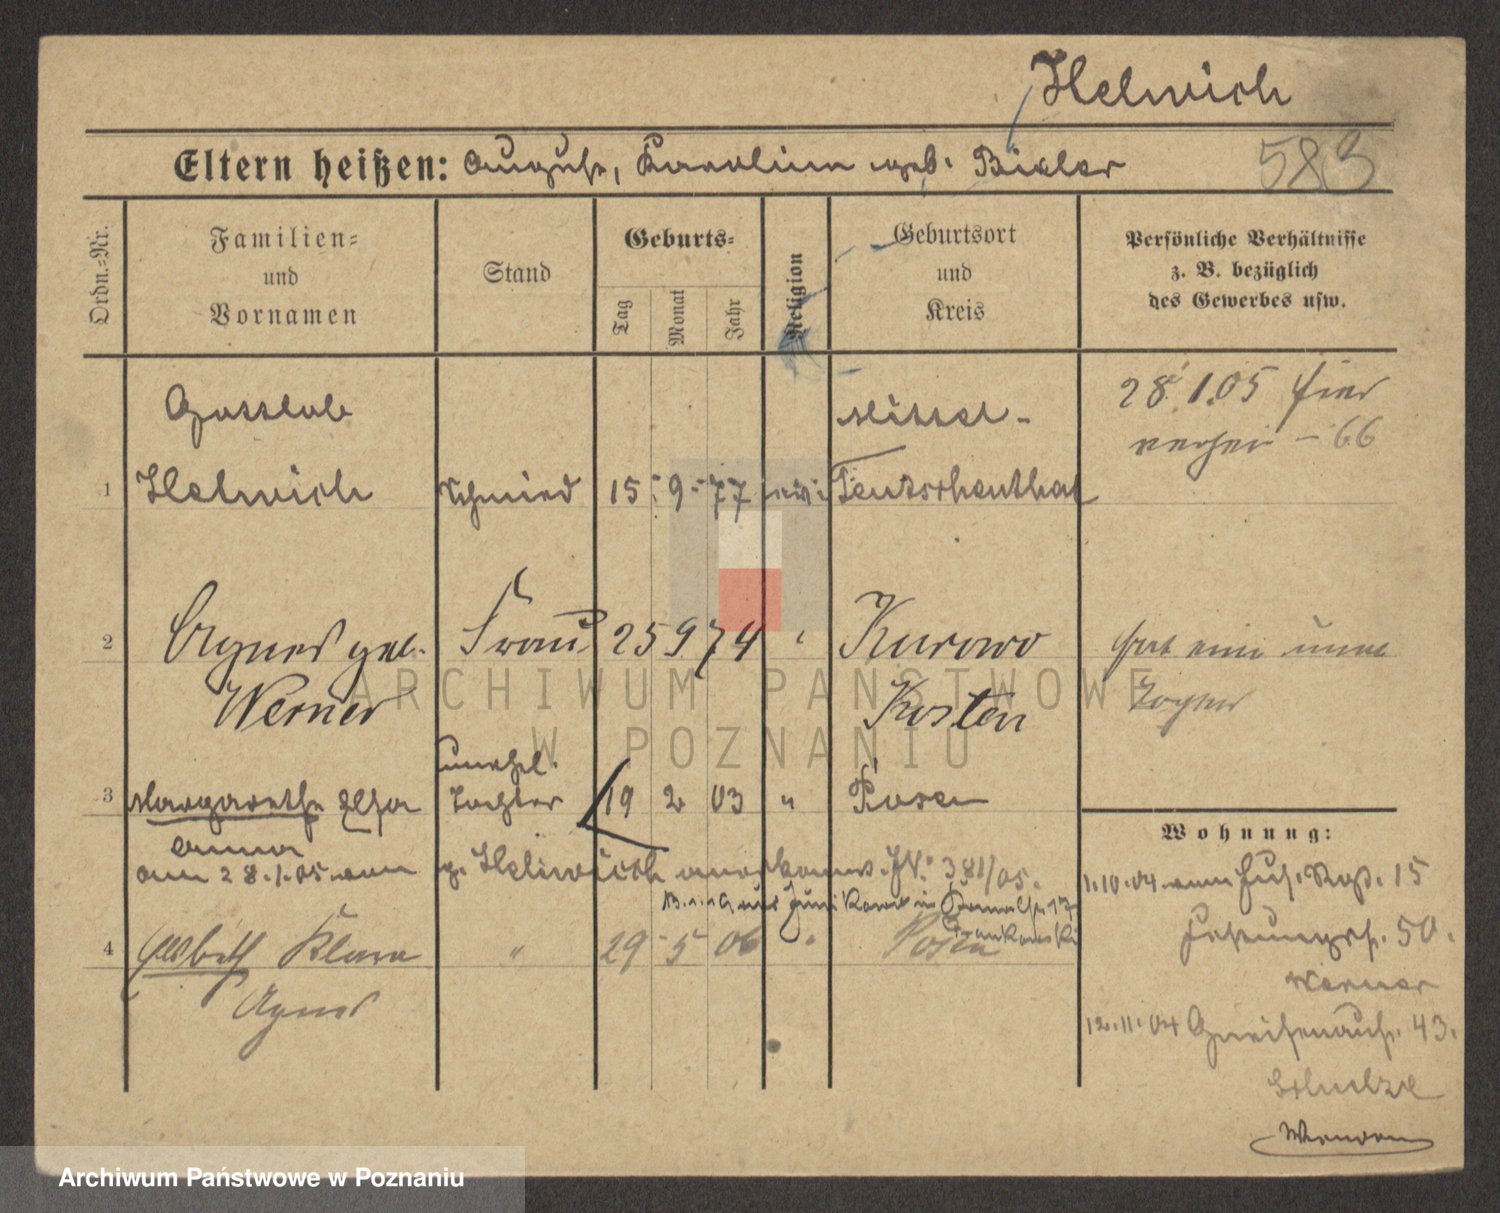 Helwich
583
Eltern heißen: August, Karolina geb. Bieler
Ordn.-Nr.
Familien-
und
Vornamen
Stand
Geburts-
Tag
Monat
Jahr
Religion
Geburtsort
und
Kreis
Persönliche Verhältnisse
z. B. bezüglich
des Gewerbes usw.
Gottlob
Mittel-
28.1.05 hier
– 66
1 Helwich Schmied 15. 9. 77 ev. Teutschenthal
2 Agnes geb. Frau 25 9 74 " Kurowo
hat eine unee
Werner Kosten
Tochter
unehl.
3 Margarethe Elsa Tochter 19 2 03 " Posen
Anna
am 28.1.05 von p. Helwich anerkannt. JN: 381/05.
4 Elsbeth Klara " 29 5 06 " Posen
Agnes
Wohnung:
1.10.04 15
50.
Werner
12.11.04 Gneisenaustr. 43.
Schulze
ARCHIWUM PAŃSTWOWE
W POZNANIU
Archiwum Państwowe w Poznaniu